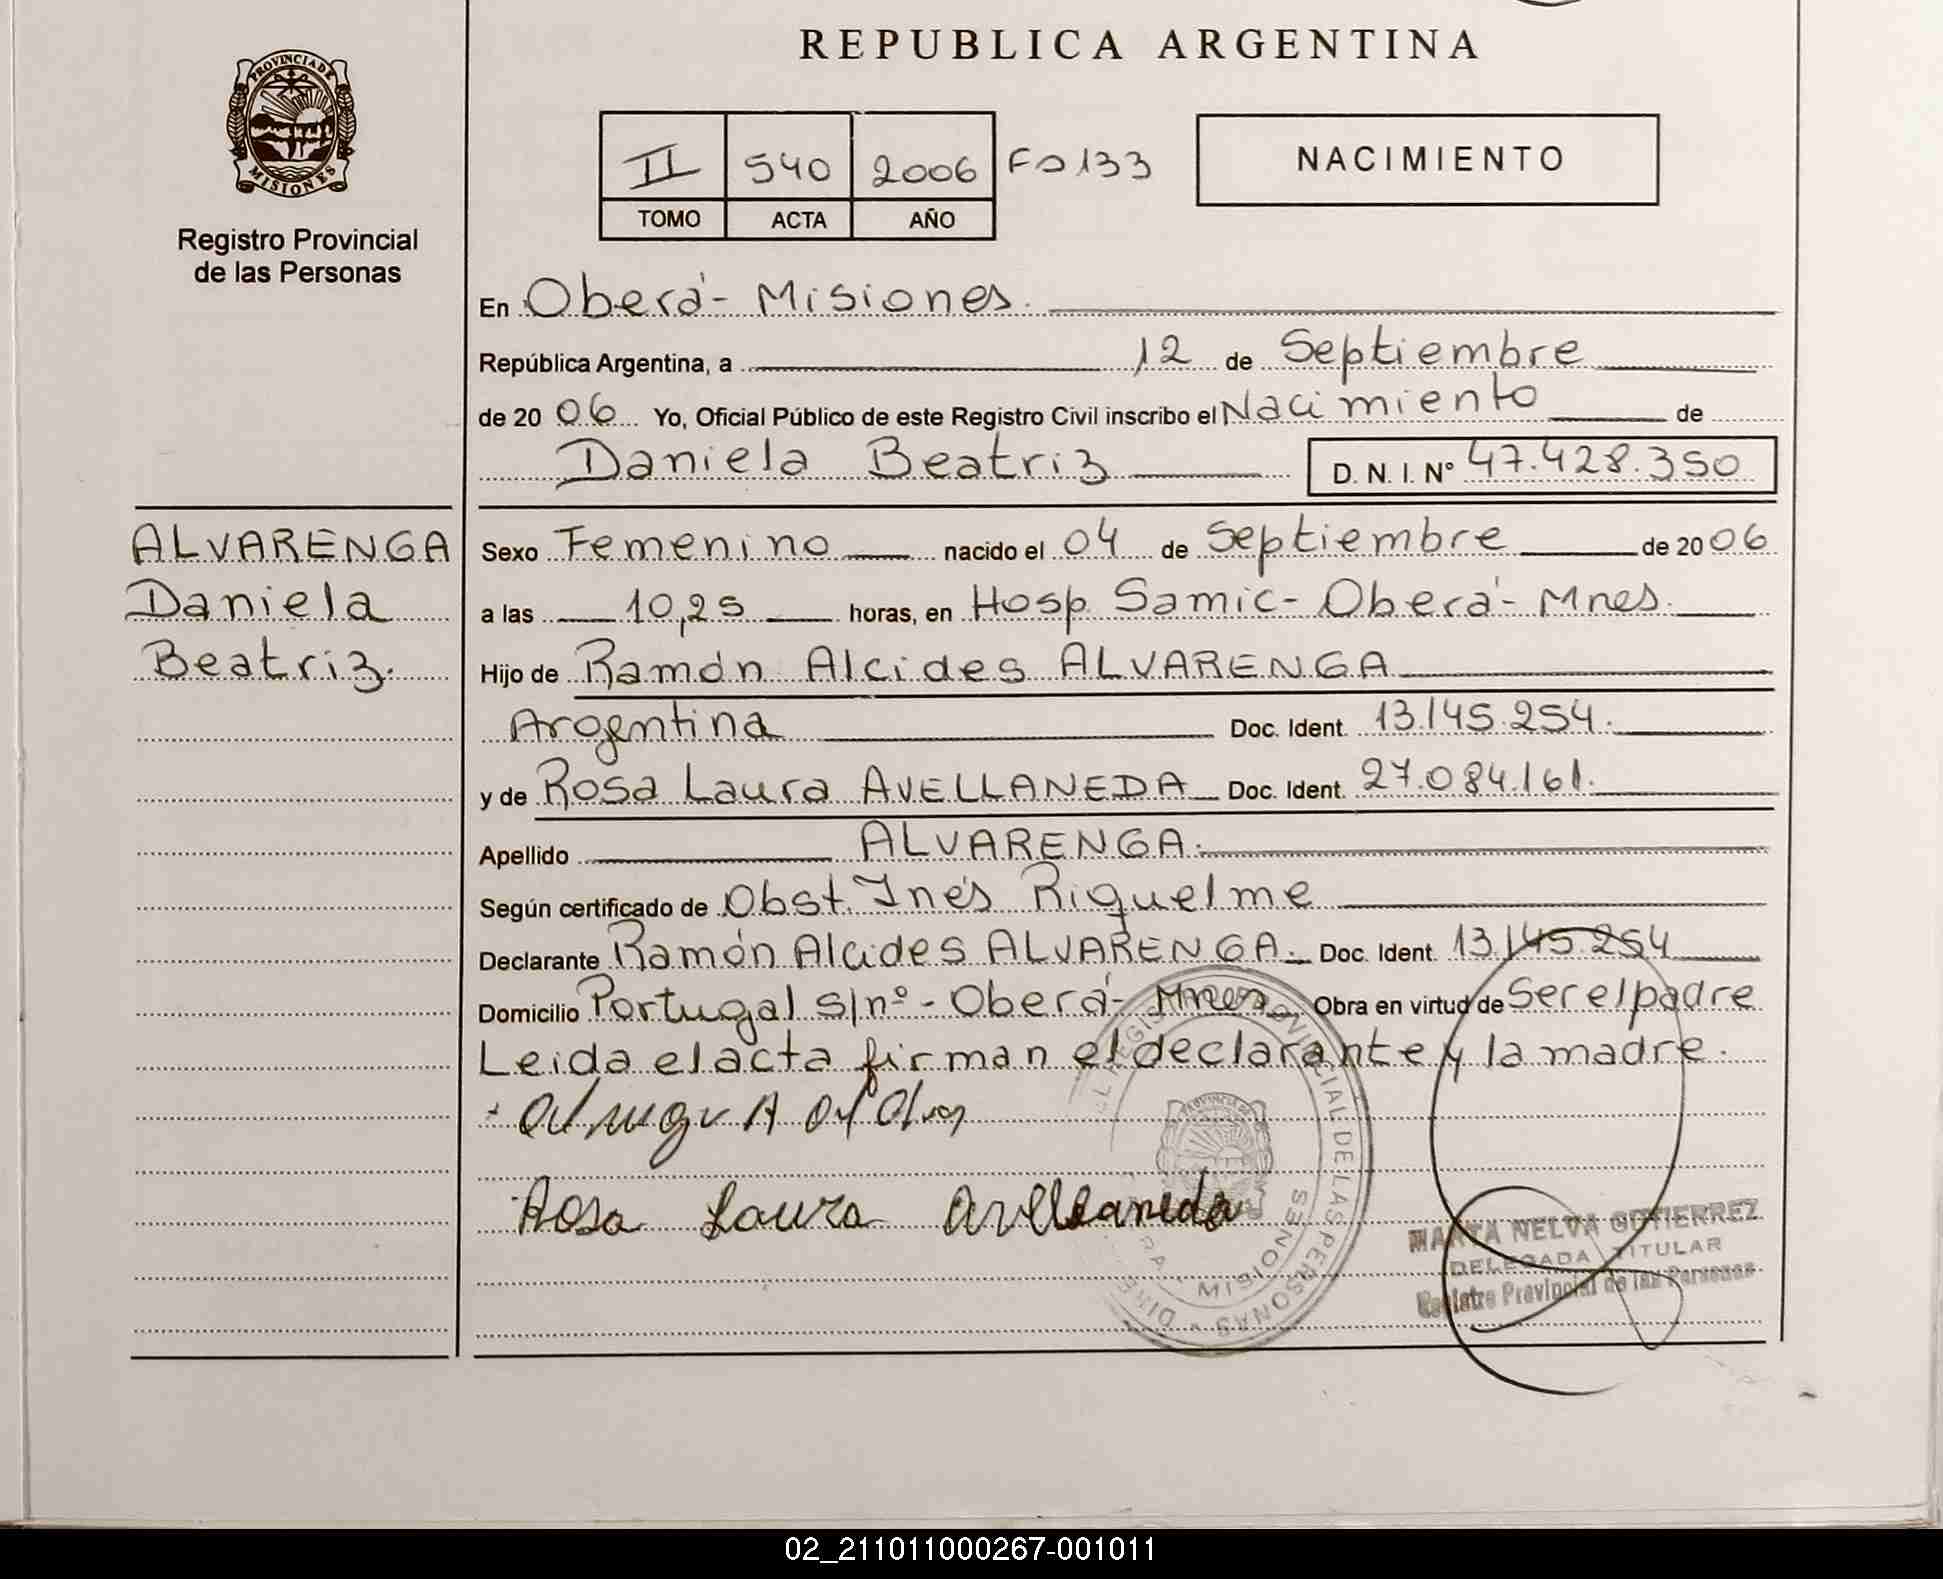 REPUBLICA ARGENTINA
PROVINCIA DE
MISIONES
Registro Provincial
de las Personas
II 540 2006 Fo 133
TOMO ACTA AÑO
NACIMIENTO
En Oberá - Misiones.
República Argentina, a 12 de Septiembre
de 20 06 Yo, Oficial Público de este Registro Civil inscribo el Nacimiento de
Daniela Beatriz D. N. I. N° 47.428.350
ALVARENGA
Daniela
Beatriz.
Sexo Femenino nacido el 04 de Septiembre de 20 06
a las 10,25 horas, en Hosp. Samic - Oberá - Mnes.
Hijo de Ramón Alcides ALVARENGA
Argentina Doc. Ident. 13.145.254.
y de Rosa Laura AVELLANEDA Doc. Ident. 27.084.161.
Apellido ALVARENGA.
Según certificado de Obst. Inés Riquelme
Declarante Ramón Alcides ALVARENGA. Doc. Ident. 13.145.254
Domicilio Portugal s/nº - Oberá - Mnes Obra en virtud de Ser el padre
Leida el acta firman el declarante y la madre.
Rosa Laura Avellaneda
PROVINCIAL DE LAS PERSONAS
MISIONES
MARTA NELVA GUTIERREZ
DELEGADA TITULAR
Registro Provincial de las Personas
02_211011000267-001011